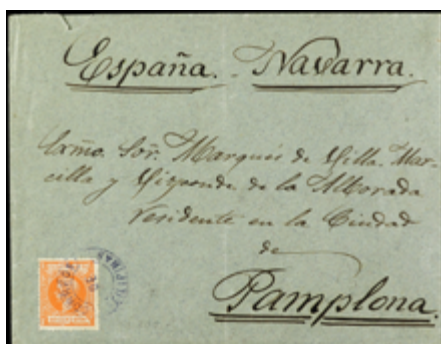 España. - Navarra.
Exmo. Sor. Marqués de Villa Mar-
cilla y de la Alborada
residente en la Ciudad
de
Pamplona.